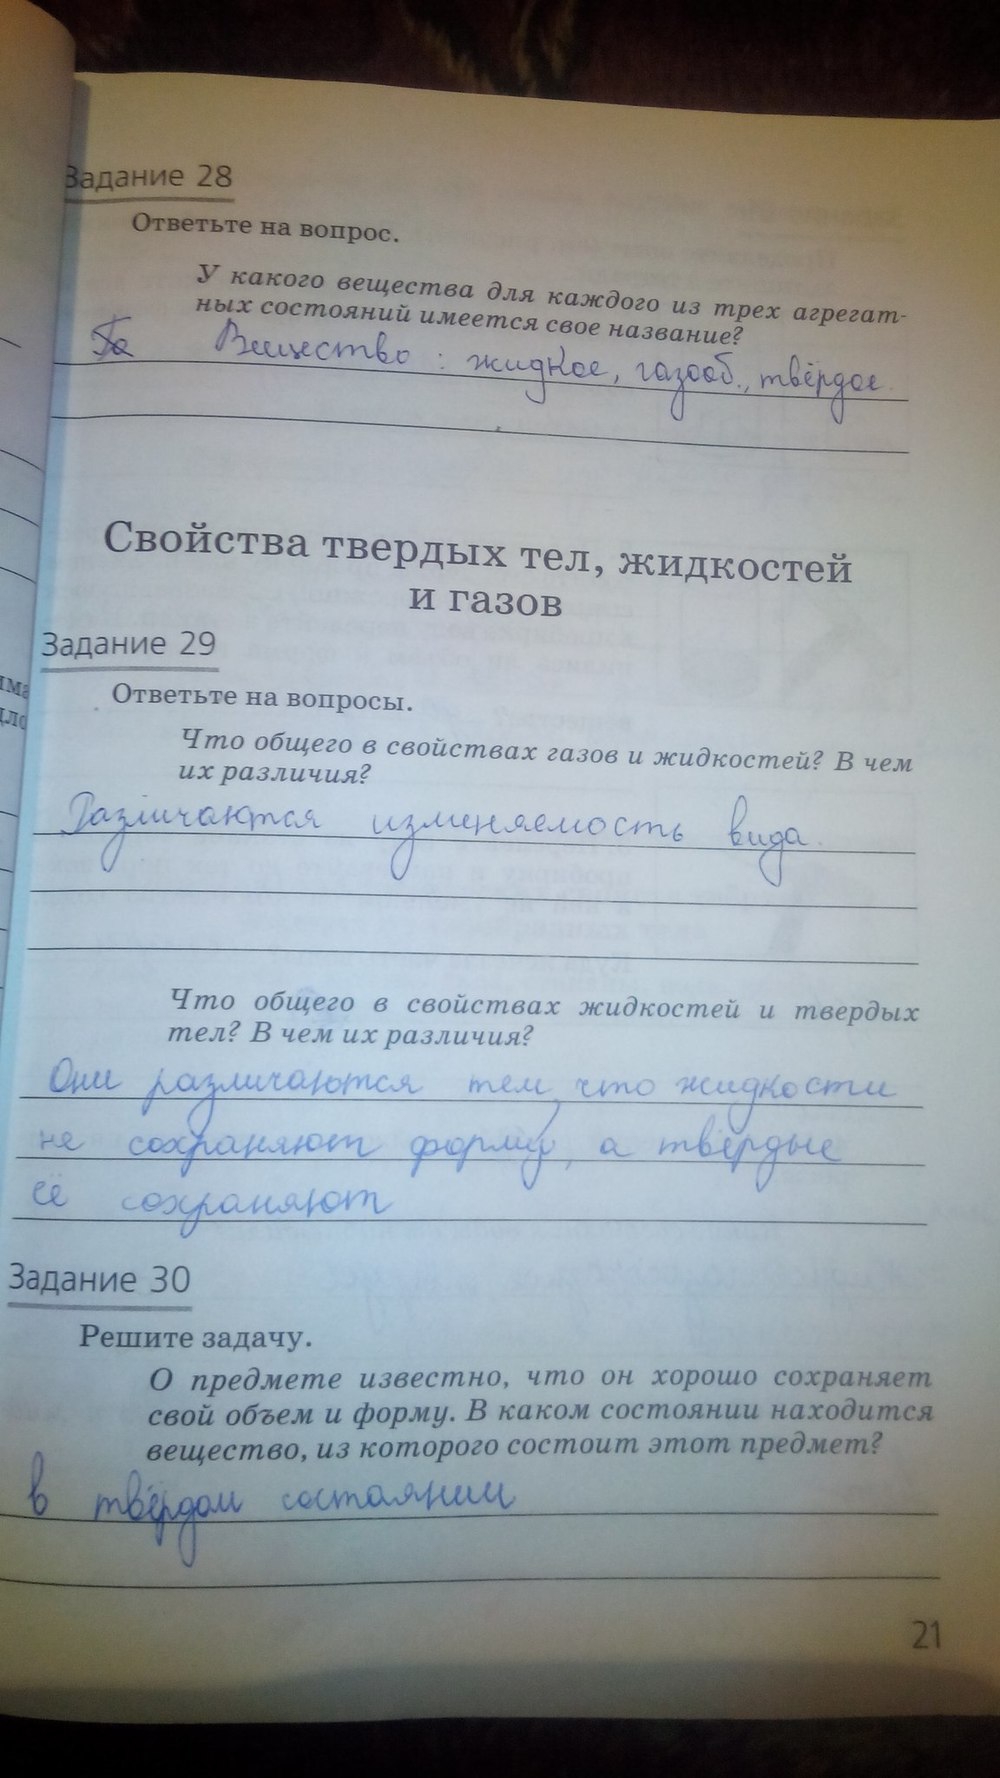 Задание 28
Ответьте на вопрос.
У какого вещества для каждого из трех агрегат-
ных состояний имеется свое название?
Вещество: жидкое, газооб., твёрдое.
Свойства твердых тел, жидкостей
и газов
Задание 29
Ответьте на вопросы.
Что общего в свойствах газов и жидкостей? В чем
их различия?
Различаются изменяемость вида.
Что общего в свойствах жидкостей и твердых
тел? В чем их различия?
Они различаются тем, что жидкости
не сохраняют форму, а твёрдые
её сохраняют
Задание 30
Решите задачу.
О предмете известно, что он хорошо сохраняет
свой объем и форму. В каком состоянии находится
вещество, из которого состоит этот предмет?
в твёрдом состоянии
21